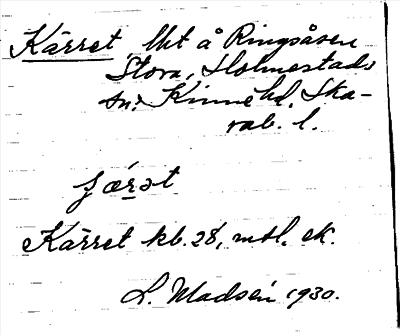 Kärret, lht å Ringsåsen
Stora, Holmestads
sn. Kinne hd. Ska-
rab. l.
Kärret kb. 28, mtl. ek.
L. Madsén 1930.